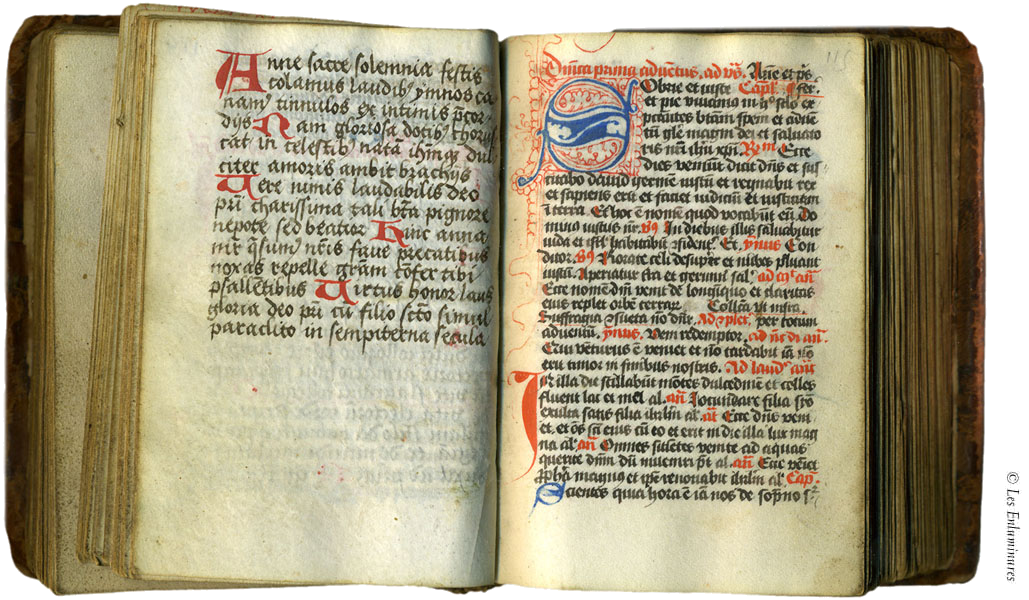 Anne sacre solemnia festis
colamus laudib; ymnos ca
nam; tinnulos ex intimis p̄cor
dijs Nam gloriosa dotib; chorus
cat in celestib; natā ih̄mq; dul
citer amoris ambit brachijs
Vere nimis laudabilis deo
pr̄ī charissima tali bt̄a pignore
nepote sed beatior Hinc anna
mr̄ q̄sum; nr̄is fave precatibus
noxas repelle grām cōfer tibi
psallētibus Virtus honor laus
gloria deo pr̄i cū filio sc̄to simul
paraclito in sempiterna secula
115
Dn̄ica prima adventus, ad vs̄. An̄e et ps̄
Sobrie et iuste Capl̄. fer.
et pie vivamus in
bt̄am spem et advē
tū gl̄e magni dei et salvato
ris nr̄i ih̄u xp̄i Rm̄ Ecce
dies veniūt dicit dn̄s et sus
citabo david germē iustū et regnabit rex
et sapiens erit et faciet iudiciū et iusticiam
ī terra. Et hoc ē nomē quod vocabūt eū. Do
minus iustus nr̄. vs̄ In diebus illis salvabitur
iuda et isrl̄ habitabit ꝯfident̄. Et. ymnus Con
ditor. vs̄ Rorate celi desuper et nubes pluant
iustū. Aperiatur t̄ra et germinꝫ sal.
Ecce nomē dn̄i venit de longīquo et claritas
eius replet orbē terrar̄. Collc̄a ut infra.
Suffragia ꝯsueta nō dn̄r. Ad ꝯplet. per totum
adventū. ymnus. Veni redemptor.
Ecce venturus ē veniet et nō tardabit iā nō
erit timor in finibus nostris. Ad laud. an̄
In illa die stillabūt mōtes dulcedinē et colles
fluent lac et mel al. an̄ Jocundare filia syō
exulta satis filia ihrl̄m al. an̄ Ecce dn̄s veni
et, et oēs sc̄i eius cū eo et erit in die illa lux mag
na al. an̄ Omnes sitiētes venite ad aquas
querite dn̄m dū inveniri pt̄ al. an̄ Ecce veniet
ꝓph̄a magnus et ip̄e renovabit ihrl̄m al. Cap.
Scientes quia hora ē iā nos de sōpno s
© Les Enluminures